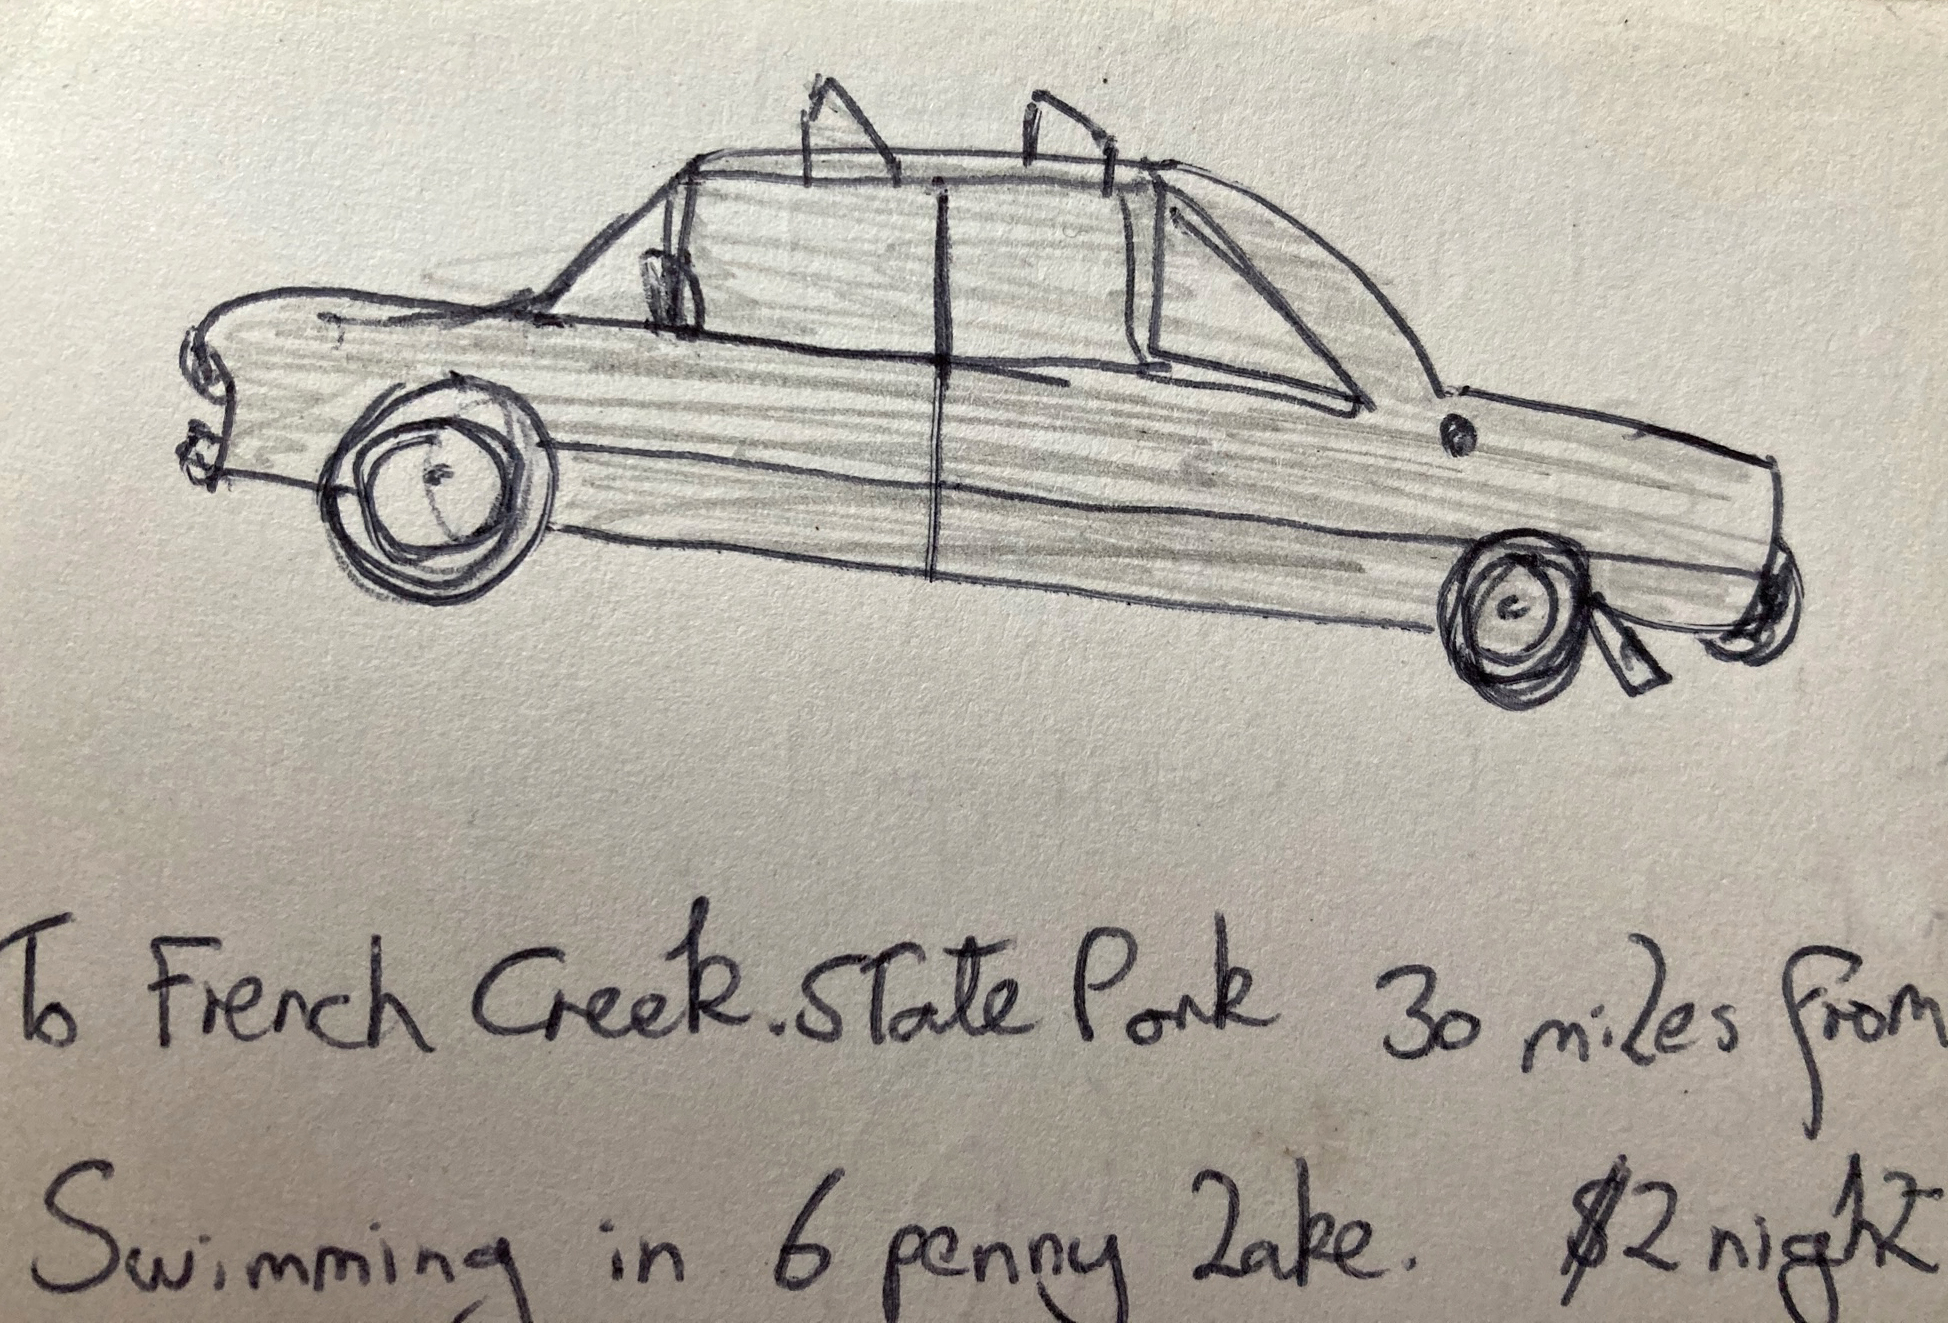 To French Creek. State Park 30 miles from
Swimming in 6 penny Lake. $2 night